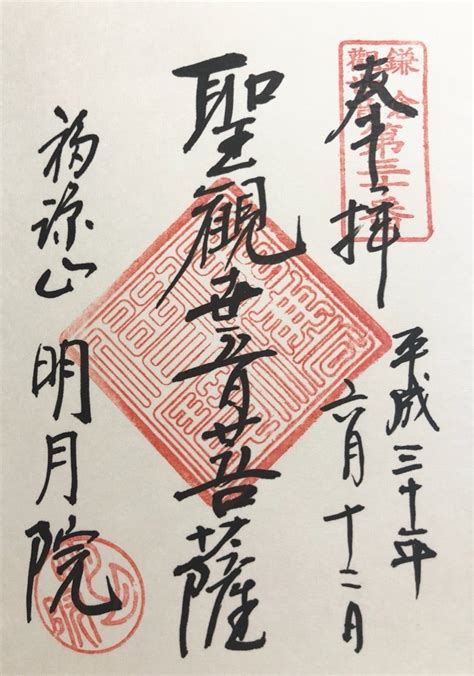 鎌倉
観音第三十番
奉拝
平成三十年
六月十二日
聖観世音菩薩
福源山
明月院